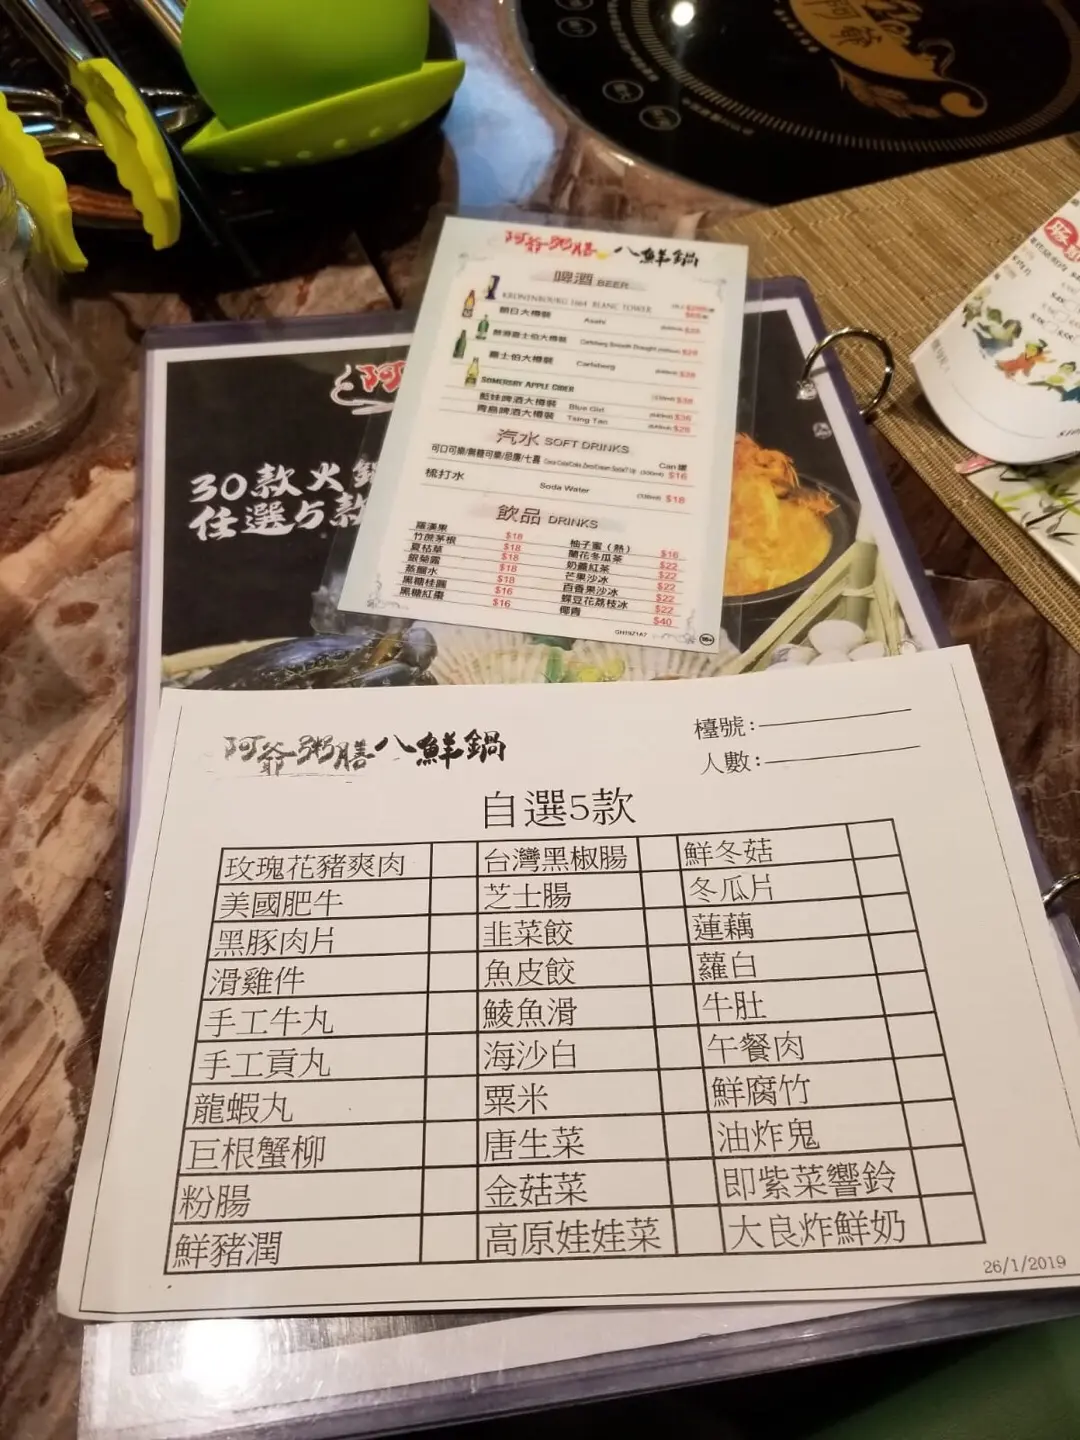 阿爺粥膳 八鮮鍋
啤酒 BEER
KRONENBOURG 1664 BLANC TOWER
朝日大樽裝 Asahi
嘉士伯大樽裝 Carlsberg
SOMERSBY APPLE CIDER
藍妹啤酒大樽裝 Blue Girl
青島啤酒大樽裝 Tsing Tao
汽水 SOFT DRINKS
Can 罐
$16
梳打水 Soda Water $18
飲品 DRINKS
羅漢果 $18
竹蔗茅根 $18
夏枯草 $18
銀菊露 $18
蒸餾水 $18
黑糖桂圓 $16
黑糖紅棗 $16
柚子蜜(熱) $16
蘭花冬瓜茶 $22
奶蓋紅茶 $22
芒果沙冰 $22
百香果沙冰 $22
蝶豆花荔枝冰 $22
椰青 $40
30款火鍋
任選5款
阿爺粥膳八鮮鍋
檯號:
人數:
自選5款
玫瑰花豬爽肉 台灣黑椒腸 鮮冬菇
美國肥牛 芝士腸 冬瓜片
黑豚肉片 韭菜餃 蓮藕
滑雞件 魚皮餃 蘿白
手工牛丸 鯪魚滑 牛肚
手工貢丸 海沙白 午餐肉
龍蝦丸 粟米 鮮腐竹
巨根蟹柳 唐生菜 油炸鬼
粉腸 金菇菜 即紫菜響鈴
鮮豬潤 高原娃娃菜 大良炸鮮奶
26/1/2019